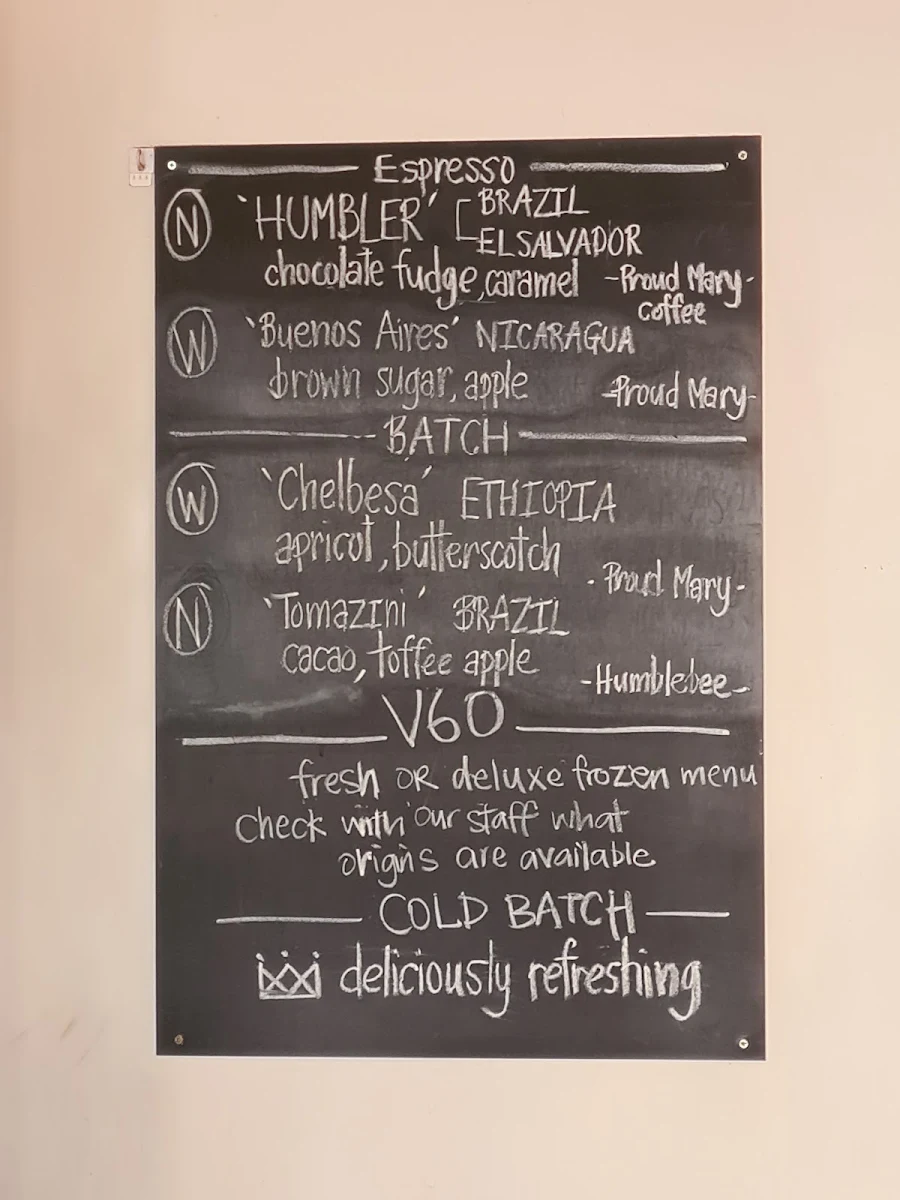 Espresso
N 'HUMBLER' BRAZIL
EL SALVADOR
chocolate fudge, caramel -Proud Mary-
coffee
W 'Buenos Aires' NICARAGUA
brown sugar, apple -Proud Mary-
BATCH
W 'Chelbesa' ETHIOPIA
apricot, butterscotch
- Proud Mary -
N 'Tomazini' BRAZIL
cacao, toffee apple
-Humblebee-
V60
fresh OR deluxe frozen menu
check with our staff what
origins are available
COLD BATCH
deliciously refreshing